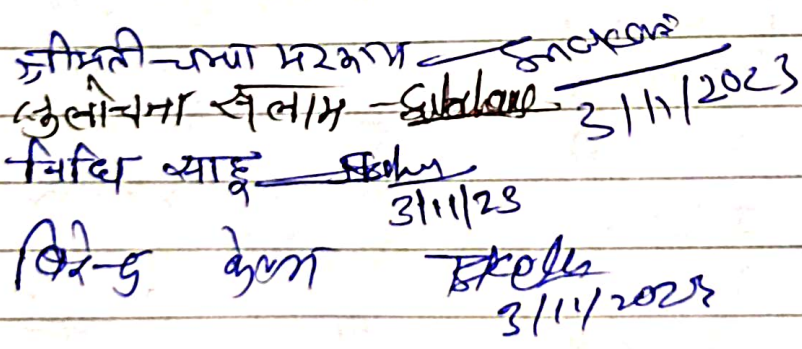 श्रीमती चम्पा मरकाम
सुलोचना सलाम
3/11/2023
निधि साहू
3/11/23
बिरेन्द्र केराम
3/11/2023